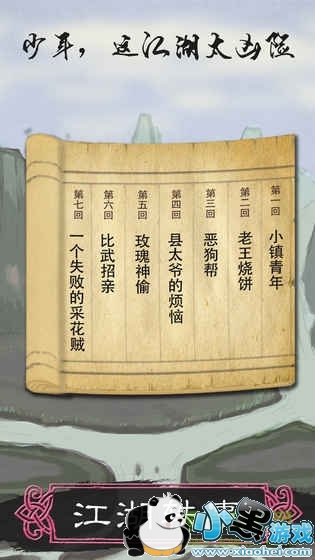 少年，这江湖太凶险
第一回 小镇青年
第二回 老王烧饼
第三回 恶狗帮
第四回 县太爷的烦恼
第五回 玫瑰神偷
第六回 比武招亲
第七回 一个失败的采花贼
江湖
小黑游戏
www.xiaohei.com